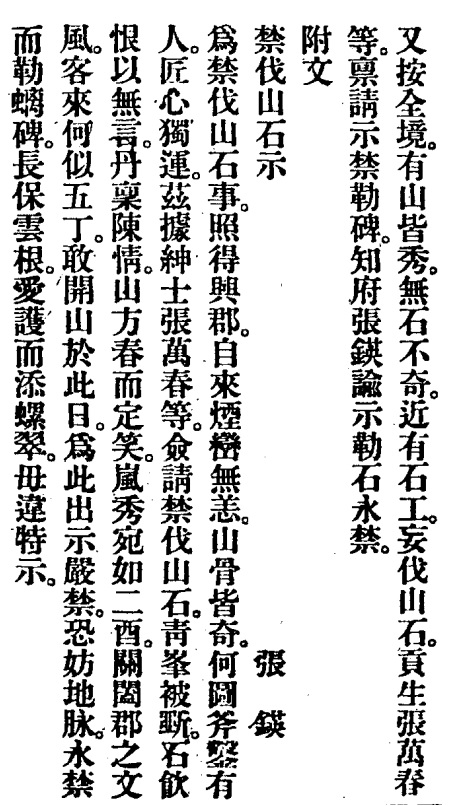 又按全境。有山皆秀。無石不奇。近有石工。妄伐山石。貢生張萬春
等。禀請示禁勒碑。知府張鍈諭示勒石永禁。
附文
禁伐山石示　張　鍈
爲禁伐山石事。照得興郡。自來煙巒無恙。山骨皆奇。何圖斧鑿有
人。匠心獨運。茲據紳士張萬春等。僉請禁伐山石。靑峯被斲。石飮
恨以無言。丹稟陳情。山方春而定笑。嵐秀宛如二酉。關闔郡之文
風。客來何似五丁。敢開山於此日。爲此出示嚴禁。恐妨地脉。永禁
而勒螭碑。長保雲根。愛護而添螺翠。毋違特示。